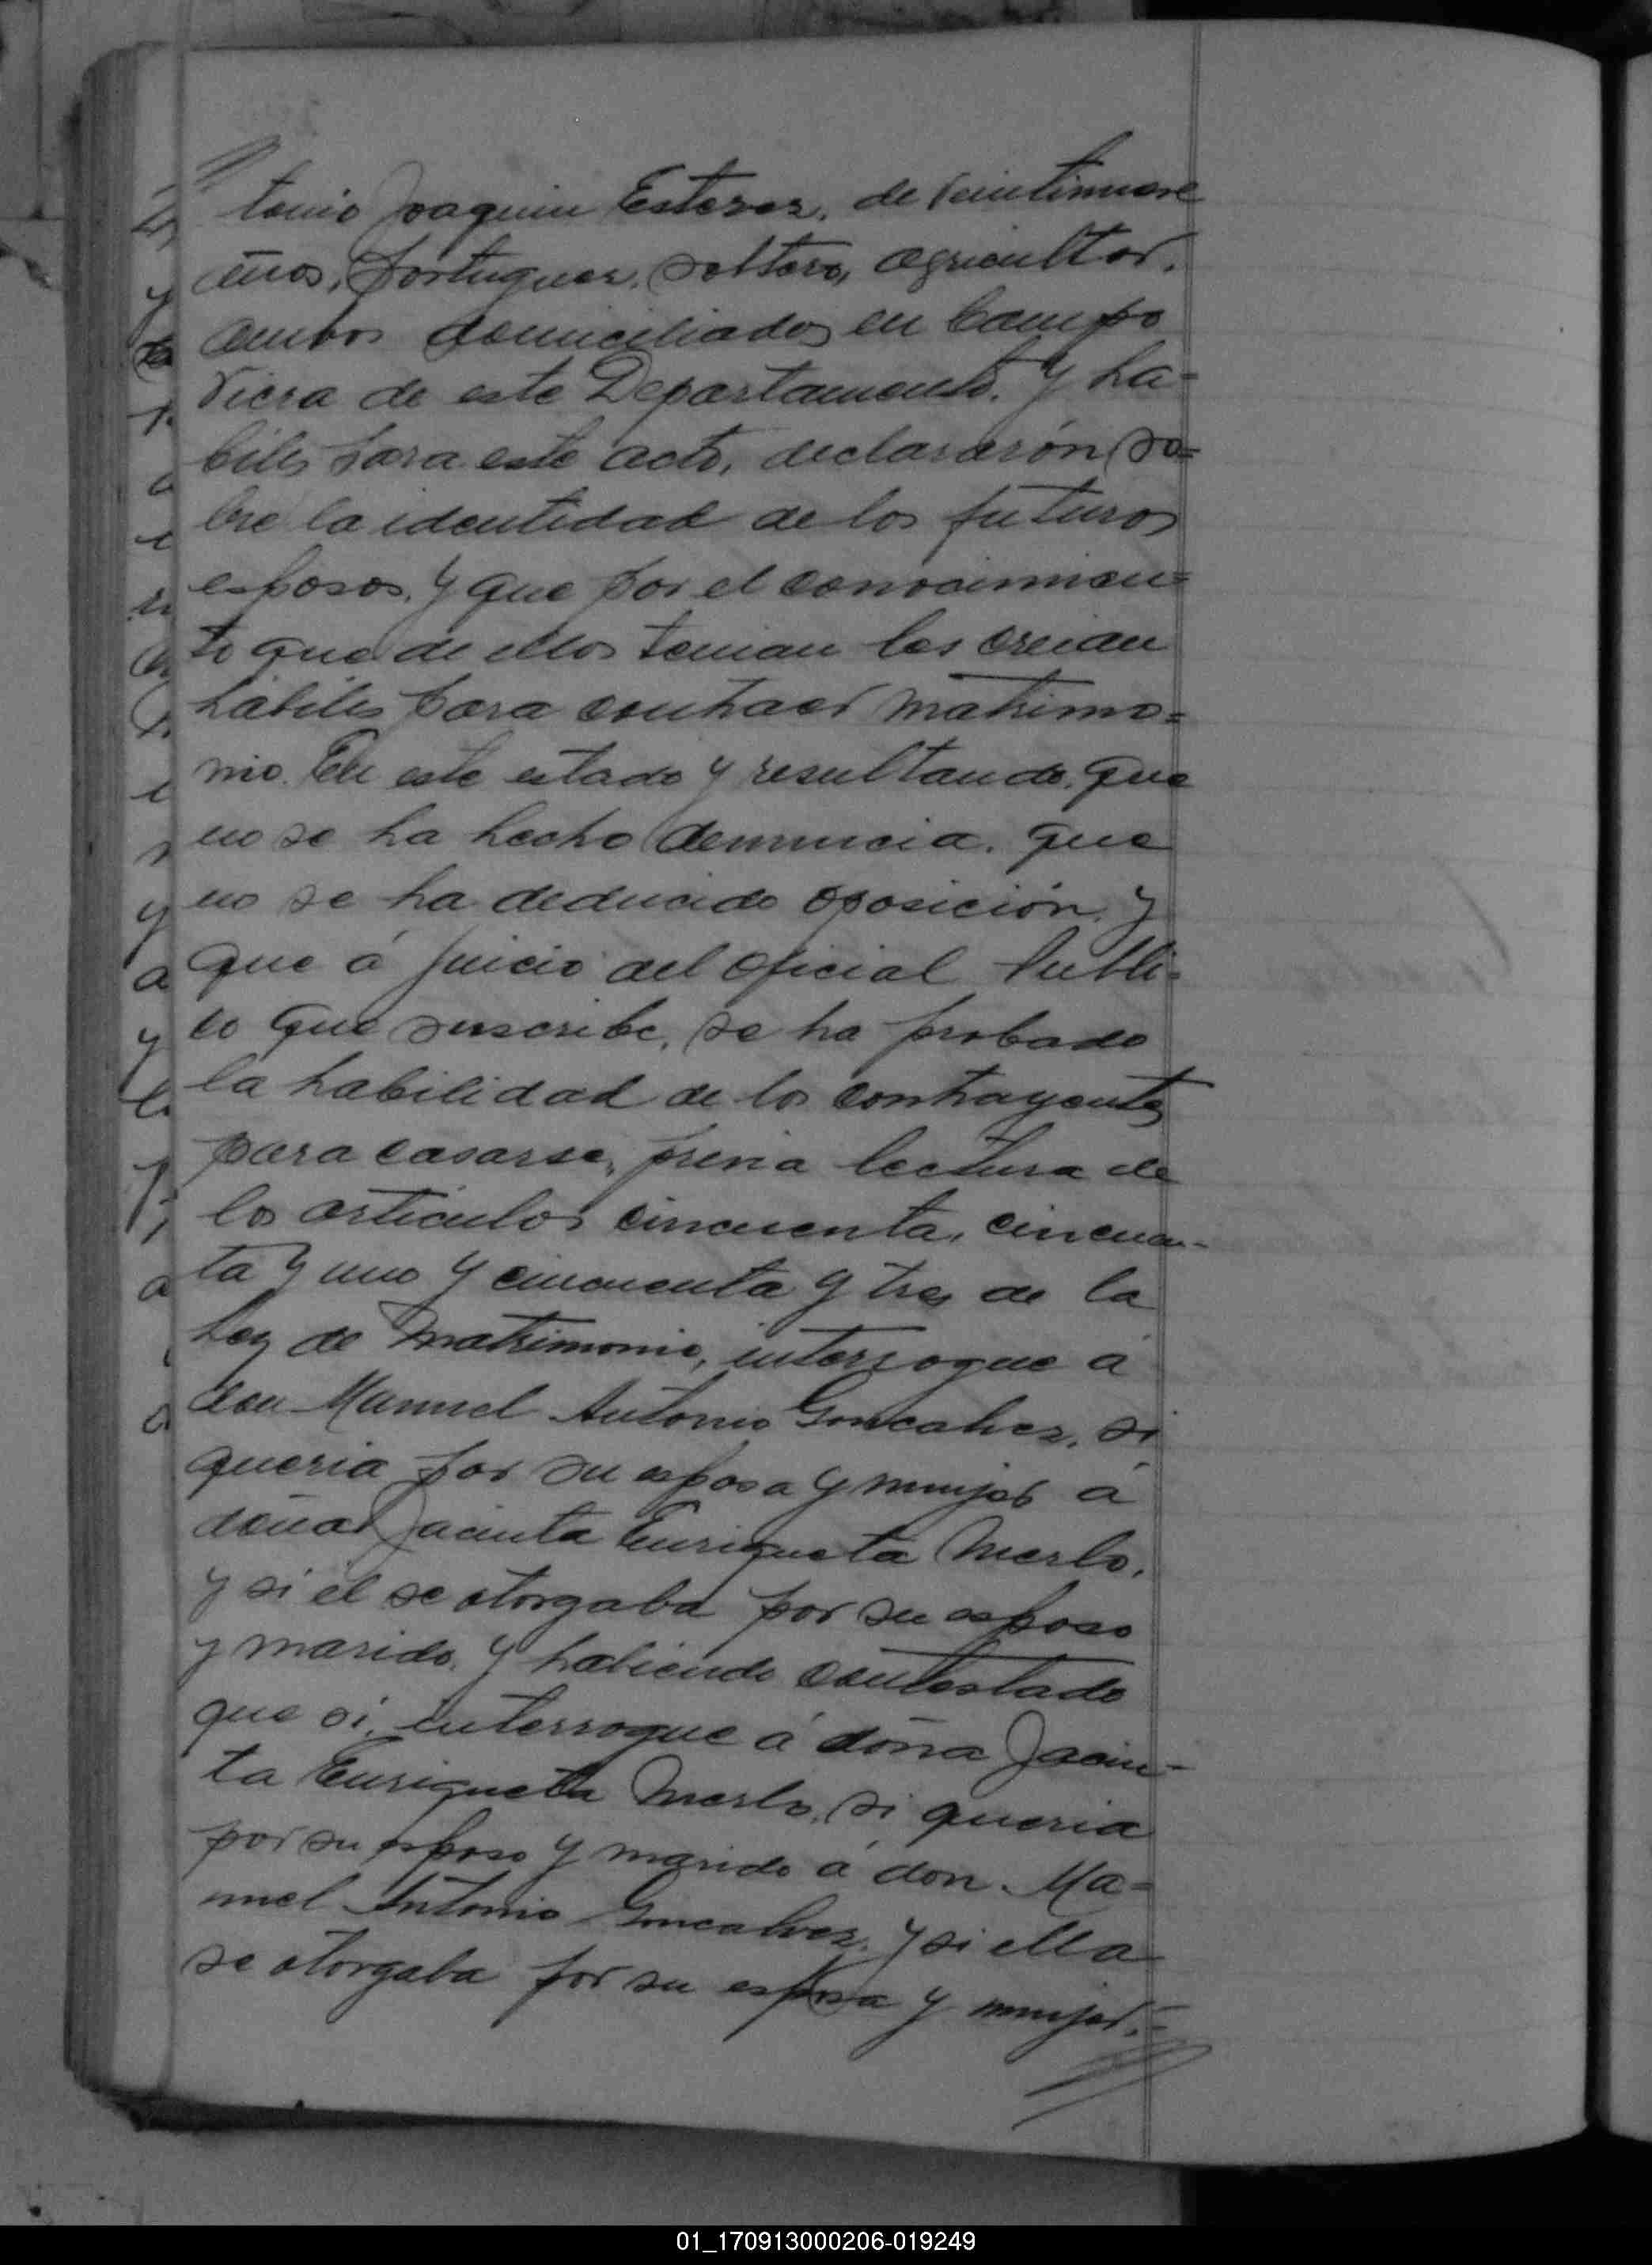 tonio Joaquin Estevez, de veintinueve
años, portuguez, soltero, agricultor,
ambos domiciliados en Campo
Viera de este Departamento. Y ha=
biles para este acto, declararón so=
bre la identidad de los futuros
esposos, y que por el conocimien=
to que de ellos tenian los creian
hábiles para contraer matrimo=
nio. En este estado y resultando, que
no se ha hecho denuncia, que
no se ha deducido oposición, y
que á juicio del oficial Publi=
co que suscribe, se ha probado
la habilidad de los contrayentes
para casarse, previa lectura de
los articulos cincuenta, cincuen-
ta y uno y cincuenta y tres de la
Ley de Matrimonio, interrogue á
don Manuel Antonio Goncalvez, si
queria por su esposa y mujer á
doña Jacinta Enriqueta Merlo,
y si él se otorgaba por su esposo
y marido, y habiendo contestado
que si, interrogue á doña Jacin-
ta Enriqueta Merlo, si queria
por su esposo y marido á don Ma=
nuel Antonio Goncalvez, y si ella
se otorgaba por su esposa y mujer.=
01_170913000206-019249